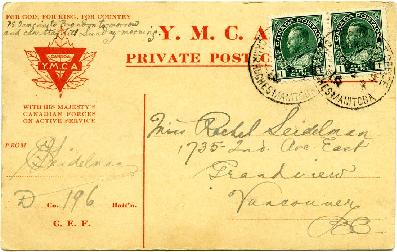 FOR GOD, FOR KING, FOR COUNTRY
Y. M. C. A
PRIVATE POST C
to Brandon tomorrow
and Sunday morning
Y.M.C.A.
WITH HIS MAJESTY'S
CANADIAN FORCES
ON ACTIVE SERVICE
CANADA POSTAGE
CANADA POSTAGE
MANITOBA
MANITOBA
Miss Rachel Seidelman
1735-2nd. Ave East
Grandview
Vancouver
BC
FROM
Seidelman
D Co. 196 Batt'n.
C. E. F.